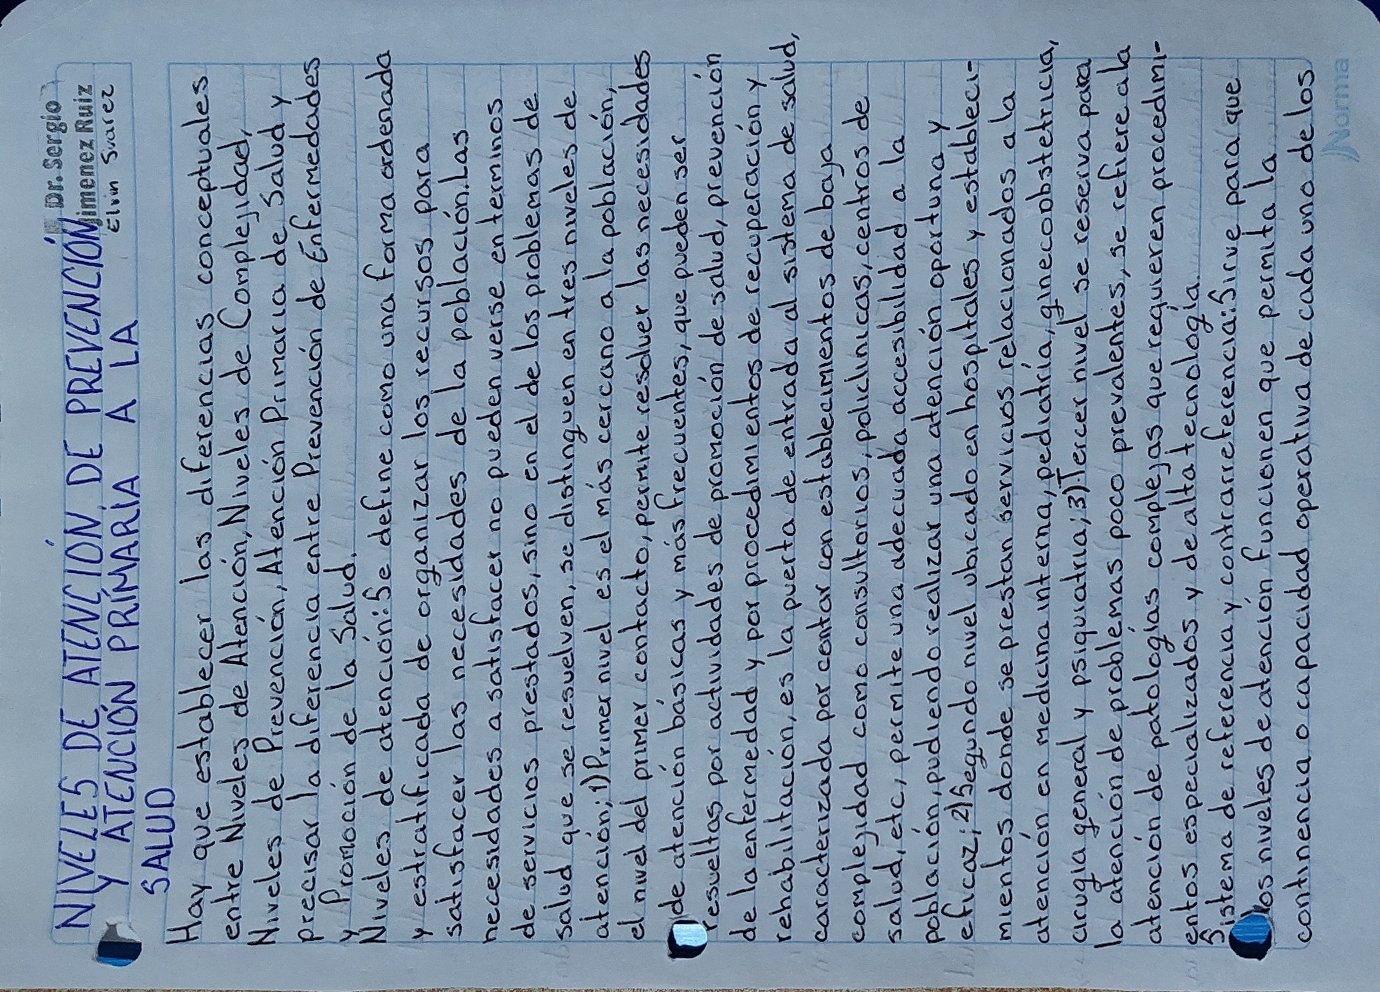 Dr. Sergio
Jimenez Ruiz
Elvin Suarez
NIVELES DE ATENCIÓN, DE PREVENCIÓN
Y ATENCIÓN PRIMARIA A LA
SALUD
Hay que establecer las diferencias conceptuales
entre Niveles de Atención, Niveles de Complejidad,
Niveles de Prevención, Atención Primaria de Salud y
precisar la diferencia entre Prevención de Enfermedades
y Promoción de la Salud.
Niveles de atención: Se define como una forma ordenada
y estratificada de organizar los recursos para
satisfacer las necesidades de la población. Las
necesidades a satisfacer no pueden verse en terminos
de servicios prestados, sino en el de los problemas de
salud que se resuelven, se distinguen en tres niveles de
atención; 1) Primer nivel es el más cercano a la población,
el nivel del primer contacto, permite resolver las necesidades
de atención básicas y más frecuentes, que pueden ser
resueltas por actividades de promoción de salud, prevención
de la enfermedad y por procedimientos de recuperación y
rehabilitación, es la puerta de entrada al sistema de salud,
caracterizada por contar con establecimientos de baja
complejidad como consultorios, policlinicas, centros de
salud, etc, permite una adecuada accesibilidad a la
población, pudiendo realizar una atención oportuna y
eficaz; 2) Segundo nivel ubicado en hospitales y estableci-
mientos donde se prestan servicios relacionados a la
atención en medicina interna, pediatría, ginecoobstetricia,
cirugia general y psiquiatria; 3) Tercer nivel se reserva para
la atención de problemas poco prevalentes, se refiere a la
atención de patologías complejas que requieren procedimi-
entos especializados y de alta tecnología.
Sistema de referencia y contrarreferencia: Sirve para que
los niveles de atención funcionen que permita la
continencia o capacidad operativa de cada uno de los
Norma